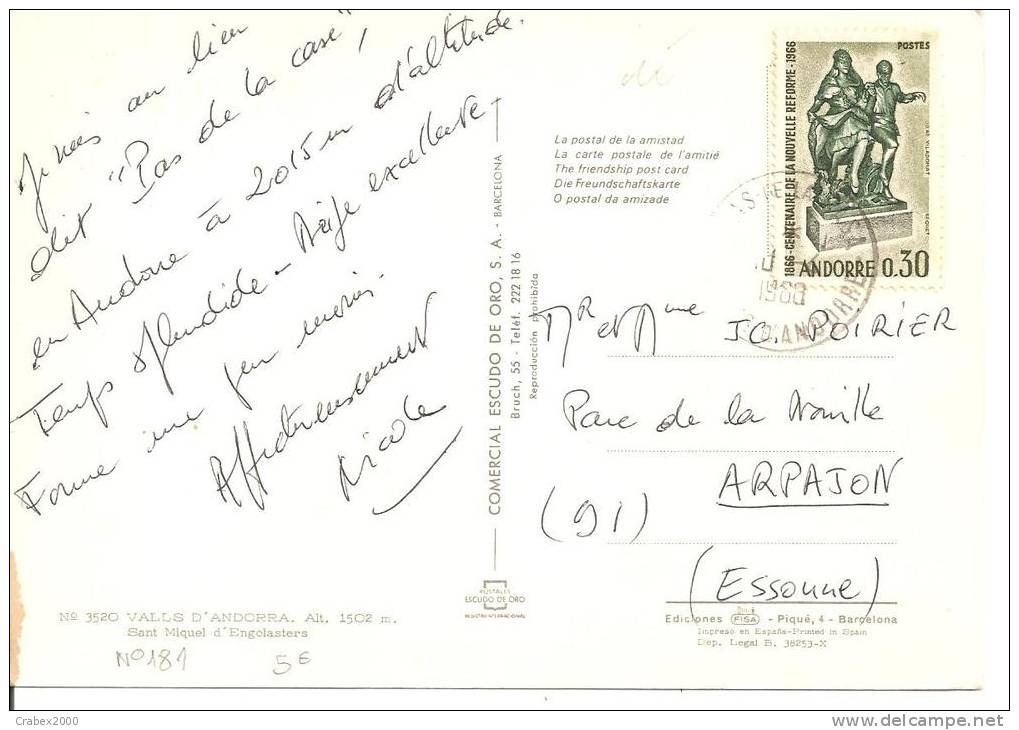 Je suis au lieu
dit "Pas de la case",
en Andorre à 2015 m d'altitude.
Temps splendide - Neige excellente,
Forme un peu moins.
Affectueusement
Nicole
Nº 3520 VALLS D'ANDORRA. Alt. 1502 m.
Sant Miquel d'Engolasters
Nº 181
5€
COMERCIAL ESCUDO DE ORO, S. A. - BARCELONA
Bruch, 55 - Teléf. 222 18 16
Reproducción prohibida
POSTALES
ESCUDO DE ORO
La postal de la amistad
La carte postale de l'amitié
The friendship post card
Die Freundschaftskarte
O postal da amizade
POSTES
1866-CENTENAIRE DE LA NOUVELLE REFORME-1966
ANDORRE 0.30
Mr et Mme JC. POIRIER
Parc de la
ARPAJON
(91)
(Essonne)
Ediciones FISA - Piqué, 4 - Barcelona
Impreso en España-Printed in Spain
Dep. Legal B. 38253-X
Crabex2000
www.delcampe.net